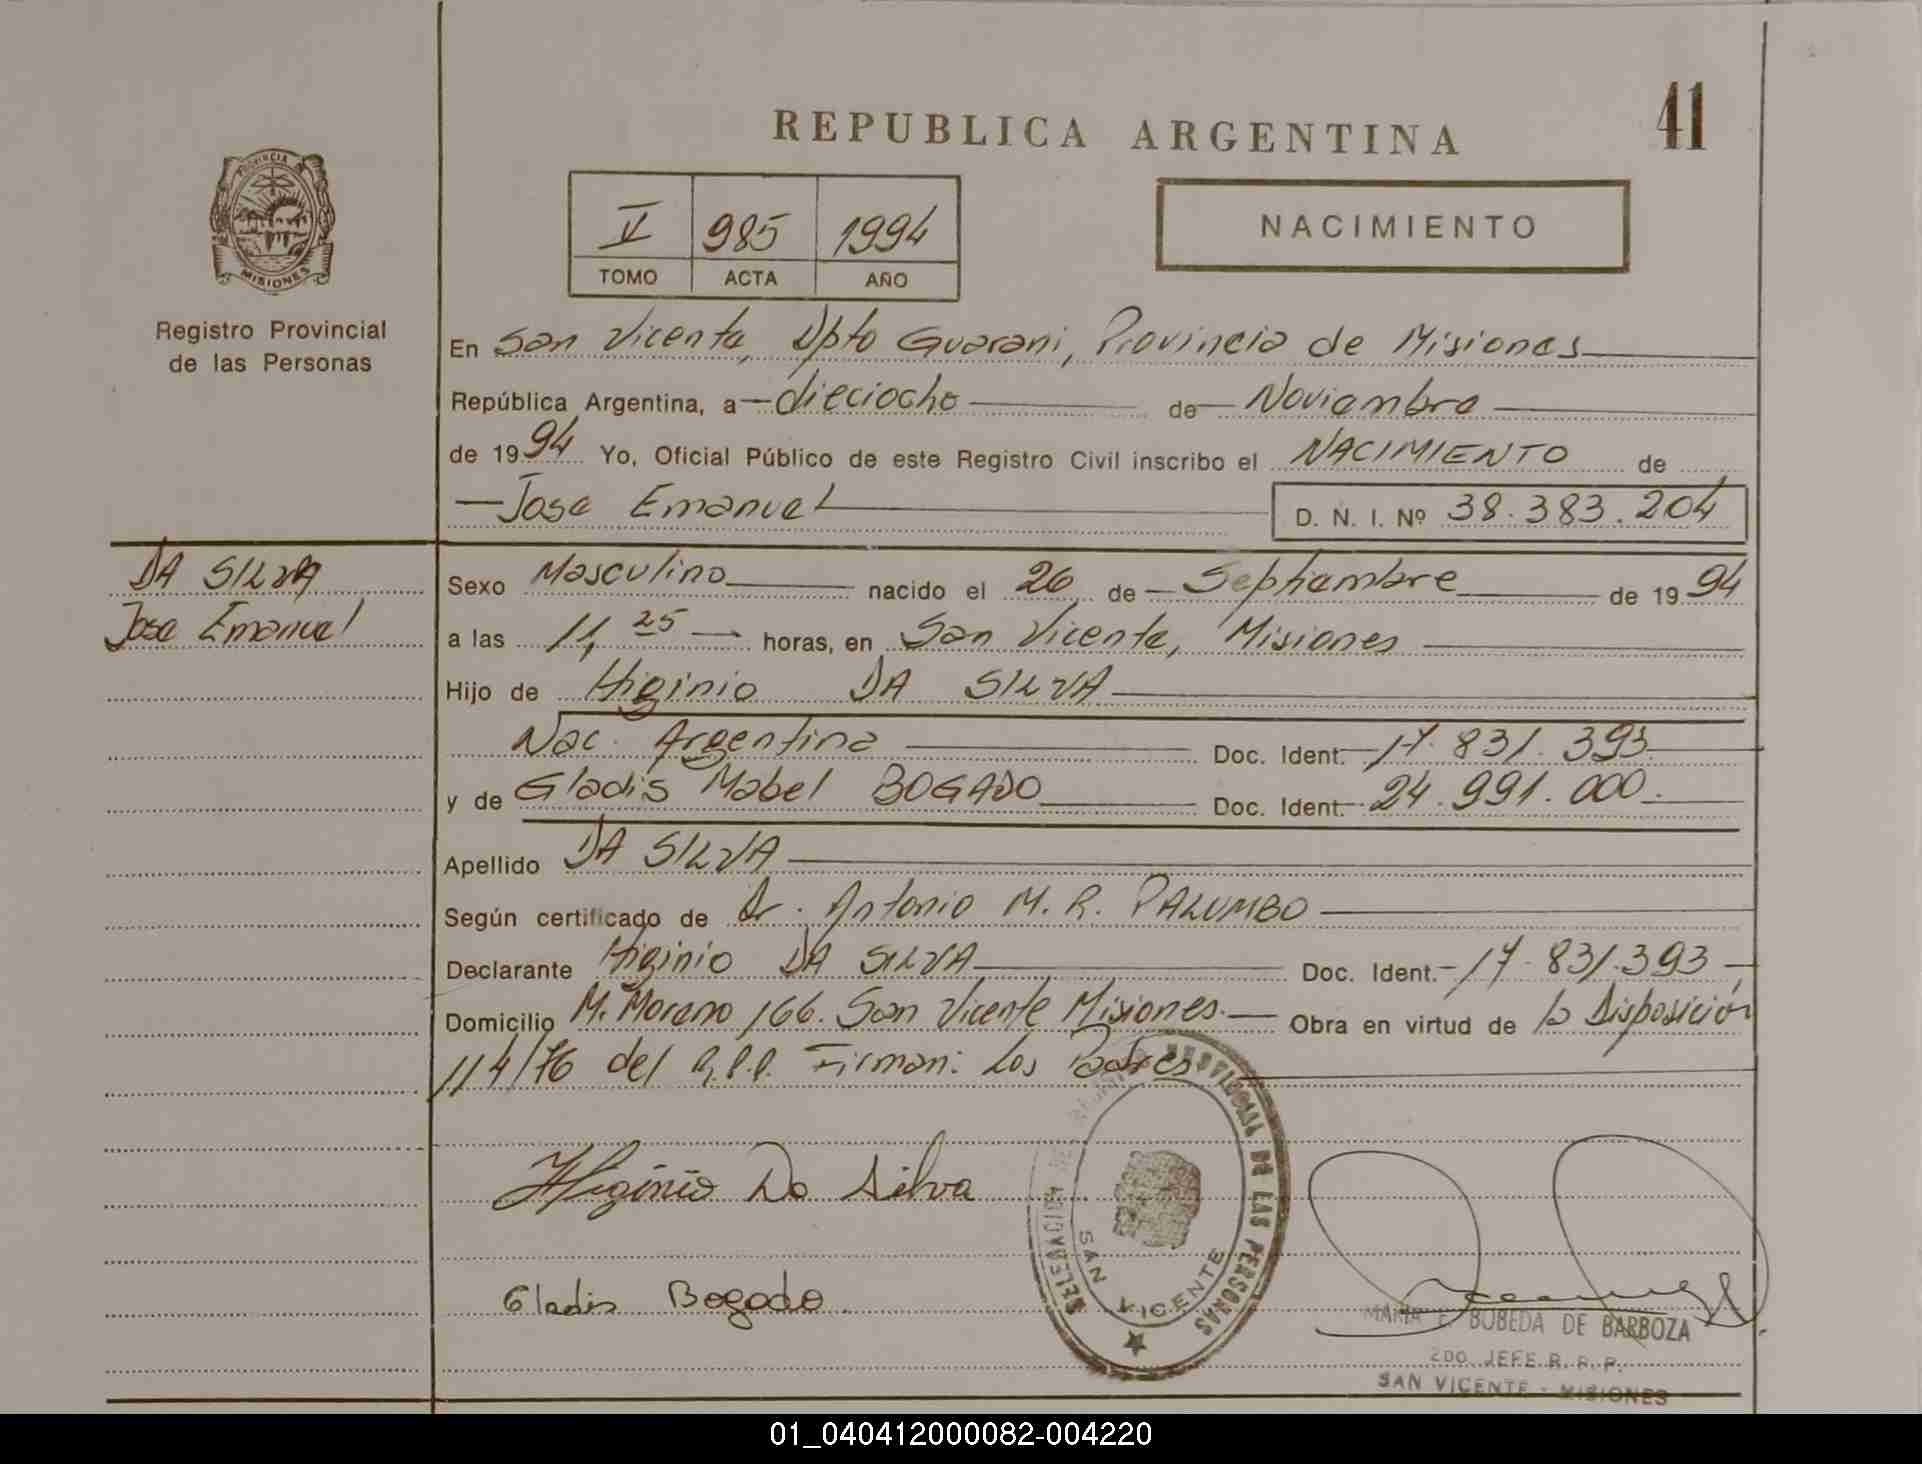 41
REPUBLICA ARGENTINA
PROVINCIA
MISIONES
Registro Provincial
de las Personas
V 985 1994
TOMO ACTA AÑO
NACIMIENTO
En San Vicente, Dpto Guarani, Provincia de Misiones
República Argentina, a dieciocho de Noviembre
de 1994 Yo, Oficial Público de este Registro Civil inscribo el NACIMIENTO de
Jose Emanuel D. N. I. Nº 38.383.204
DA SILVA
Jose Emanuel
Sexo Masculino nacido el 26 de Septiembre de 1994
a las 11,25 horas, en San Vicente, Misiones
Hijo de Higinio DA SILVA
Nac. Argentina Doc. Ident. 17.831.393
y de Gladis Mabel BOGADO Doc. Ident. 24.991.000.
Apellido DA SILVA
Según certificado de Dr. Antonio M. R. PALUMBO
Declarante Higinio DA SILVA Doc. Ident. 17.831.393
Domicilio M. Moreno 166. San Vicente Misiones. Obra en virtud de la Disposición
114/76 del R.P.P. Firman: Los Padres
Higinio Da Silva
Gladis Bogado
DELEGACION REGISTRO PROVINCIAL DE LAS PERSONAS
SAN VICENTE
MARIA E. BOBEDA DE BARBOZA
2DO. JEFE R. R. P.
SAN VICENTE - MISIONES
01_040412000082-004220